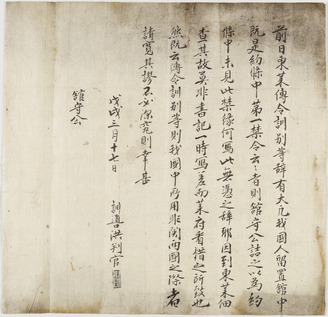 前日東萊傳令訓別等辭有大凡我國人留置館中
既是約條中第一禁令云云者則館守公詰之以為約
條中未見此禁緣何寫此無憑之辭耶因到東萊細
查其故莫非書記一時寫差而萊府看循之所致也
然既云傳令訓別等則我國中所用非關兩國之際者
請寬其謬不必深究則幸甚
戊戌三月十七日
訓導洪判官
館守公